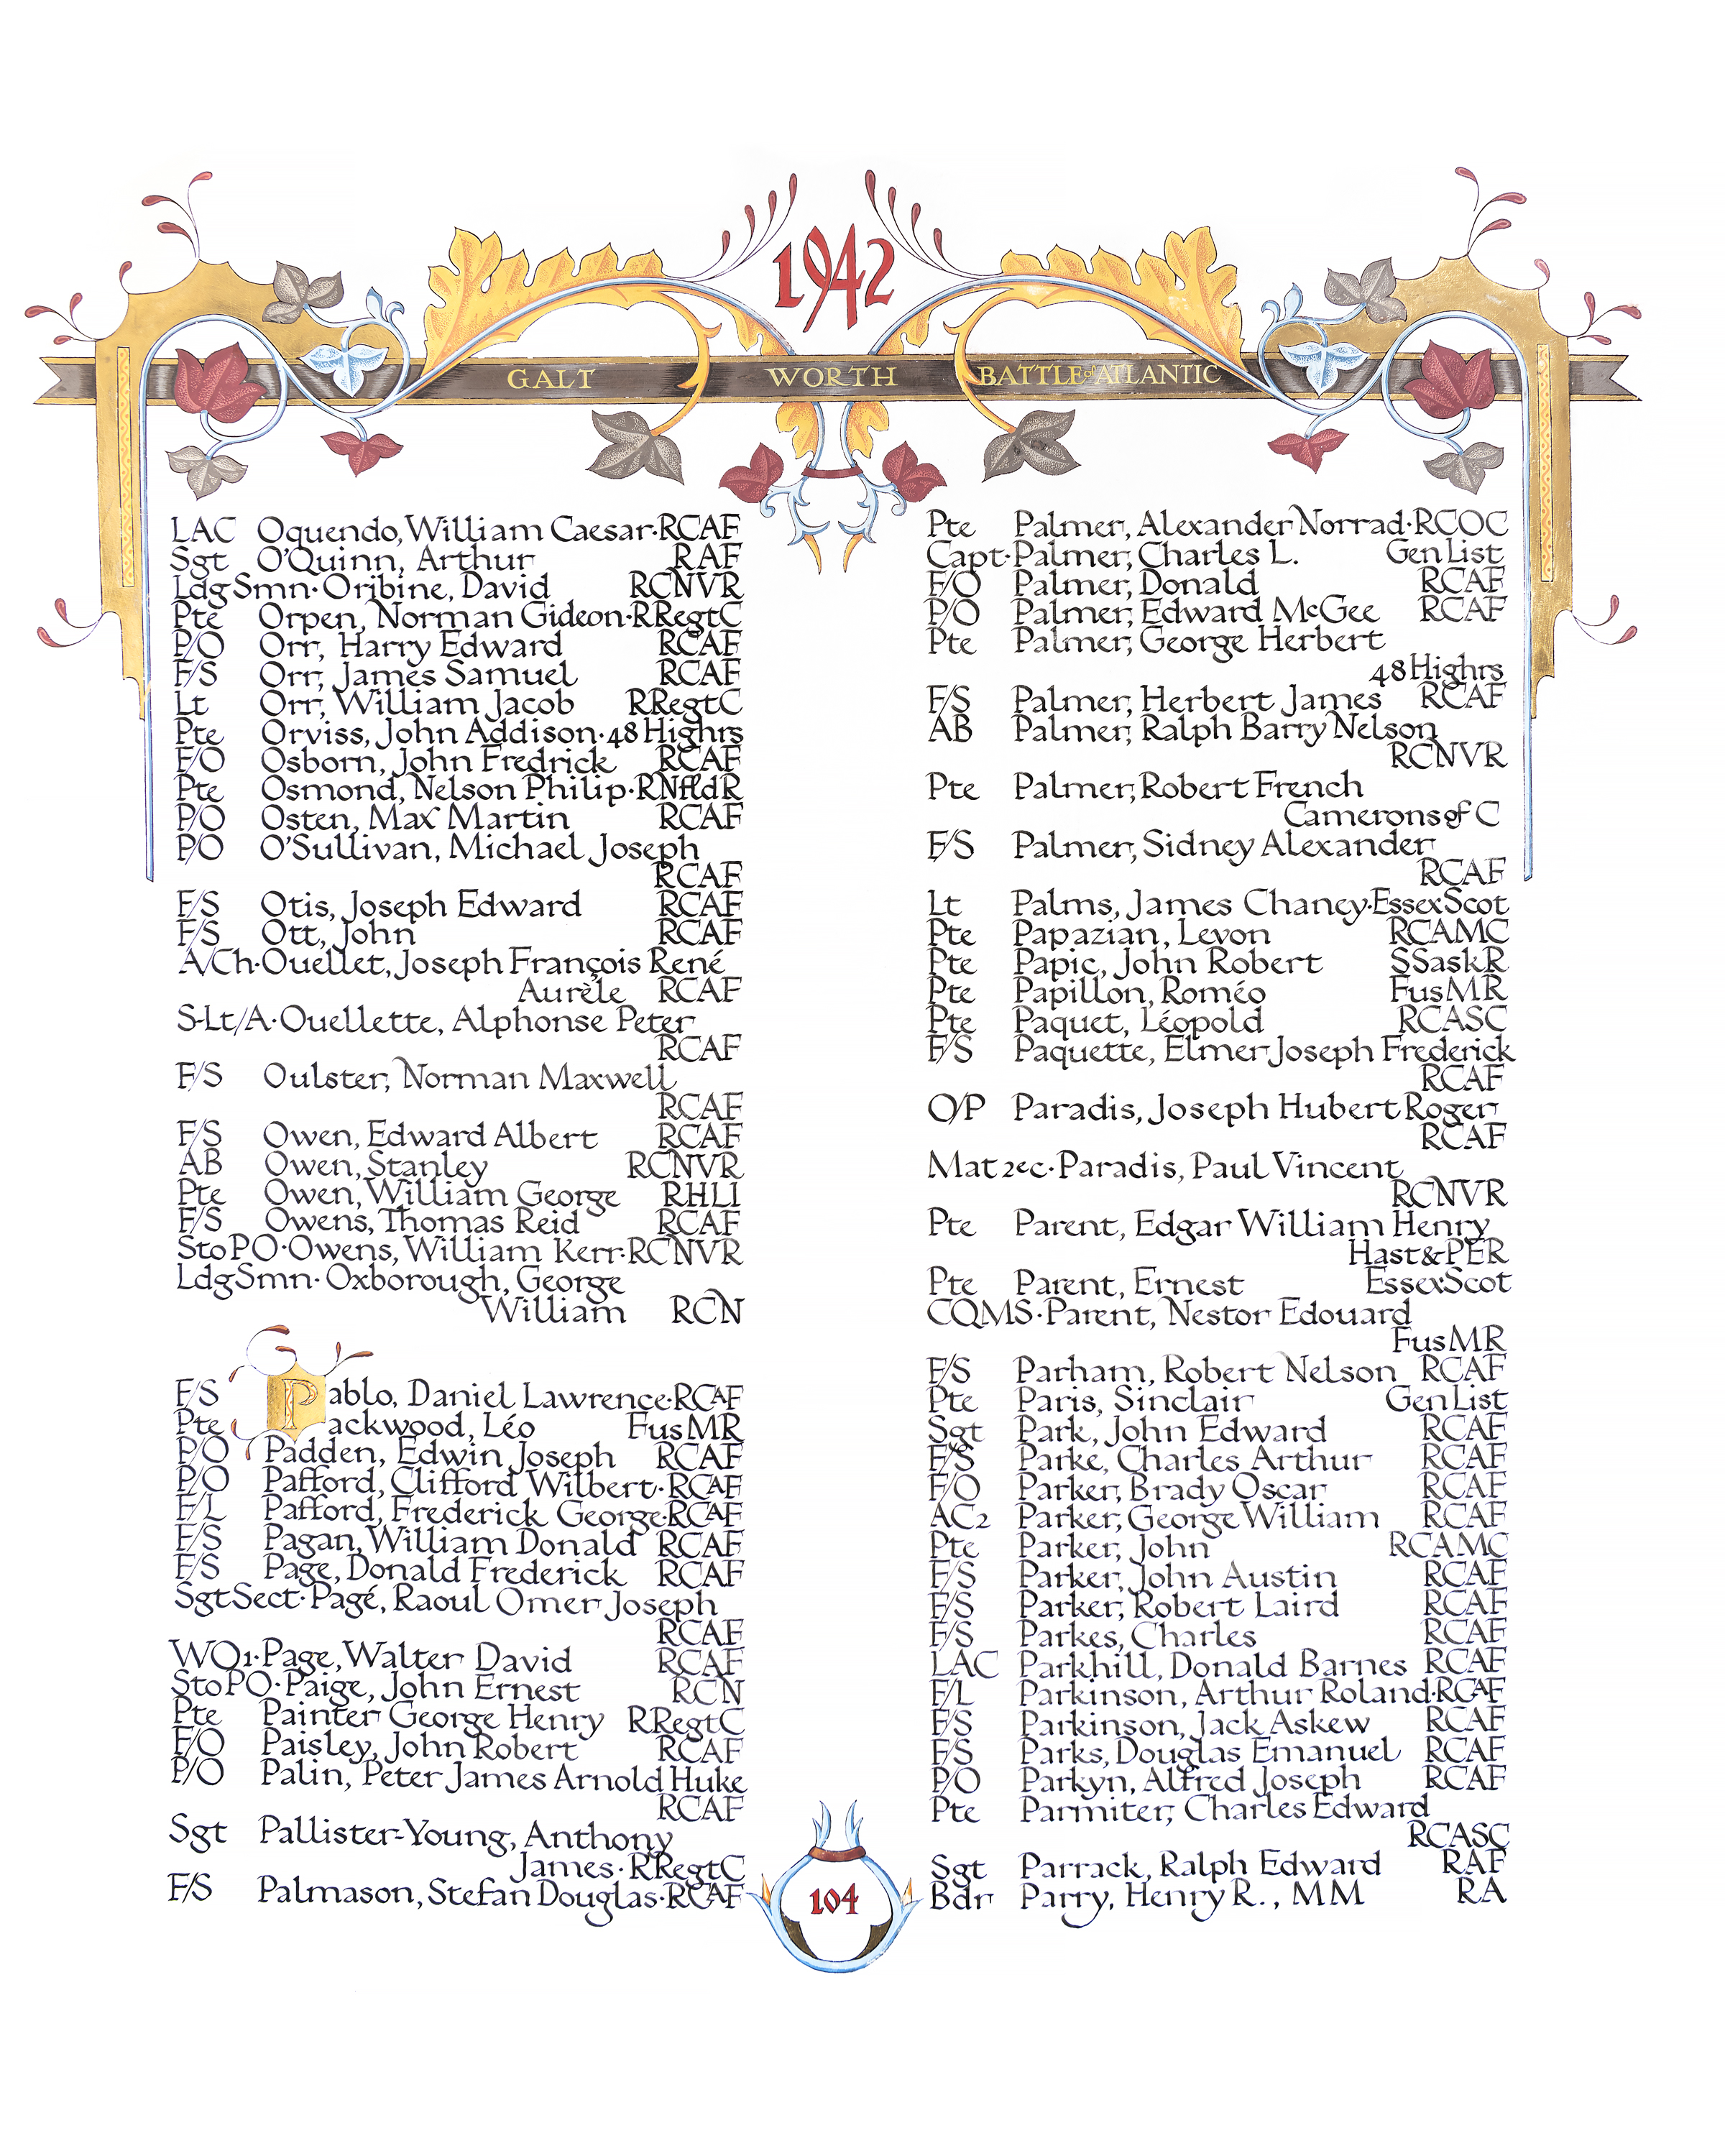 1942
GALT WORTH BATTLE of ATLANTIC
LAC Oquendo, William Caesar·RCAF
Sgt O'Quinn, Arthur RAF
LdgSmn·Oribine, David RCNVR
Pte Orpen, Norman Gideon·RRegtC
P/O Orr, Harry Edward RCAF
F/S Orr, James Samuel RCAF
Lt Orr, William Jacob RRegtC
Pte Orviss, John Addison·48 Highrs
F/O Osborn, John Fredrick RCAF
Pte Osmond, Nelson Philip·RNfldR
P/O Osten, Max Martin RCAF
P/O O'Sullivan, Michael Joseph
RCAF
F/S Otis, Joseph Edward RCAF
F/S Ott, John RCAF
A/Ch·Ouellet, Joseph François René
Aurèle RCAF
S-Lt/A·Ouellette, Alphonse Peter
RCAF
F/S Oulster, Norman Maxwell
RCAF
F/S Owen, Edward Albert RCAF
AB Owen, Stanley RCNVR
Pte Owen, William George RHLI
F/S Owens, Thomas Reid RCAF
StoPO·Owens, William Kerr·RCNVR
LdgSmn·Oxborough, George
William RCN
F/S Pablo, Daniel Lawrence·RCAF
Pte Packwood, Léo FusMR
P/O Padden, Edwin Joseph RCAF
P/O Pafford, Clifford Wilbert·RCAF
F/L Pafford, Frederick George·RCAF
F/S Pagan, William Donald RCAF
F/S Page, Donald Frederick RCAF
SgtSect·Pagé, Raoul Omer Joseph
RCAF
WO1·Page, Walter David RCAF
StoPO·Paige, John Ernest RCN
Pte Painter George Henry RRegtC
F/O Paisley, John Robert RCAF
P/O Palin, Peter James Arnold Huke
RCAF
Sgt Pallister-Young, Anthony
James·RRegtC
F/S Palmason, Stefan Douglas·RCAF
Pte Palmer, Alexander Norrad·RCOC
Capt·Palmer, Charles L. Gen List
F/O Palmer, Donald RCAF
P/O Palmer, Edward McGee RCAF
Pte Palmer, George Herbert
48 Highrs
F/S Palmer, Herbert James RCAF
AB Palmer, Ralph Barry Nelson
RCNVR
Pte Palmer, Robert French
Camerons of C
F/S Palmer, Sidney Alexander
RCAF
Lt Palms, James Chaney·EssexScot
Pte Papazian, Levon RCAMC
Pte Papic, John Robert SSaskR
Pte Papillon, Roméo FusMR
Pte Paquet, Léopold RCASC
F/S Paquette, Elmer Joseph Frederick
RCAF
O/P Paradis, Joseph Hubert Roger
RCAF
Mat 2ec·Paradis, Paul Vincent
RCNVR
Pte Parent, Edgar William Henry
Hast&PER
Pte Parent, Ernest EssexScot
CQMS·Parent, Nestor Edouard
FusMR
F/S Parham, Robert Nelson RCAF
Pte Paris, Sinclair Gen List
Sgt Park, John Edward RCAF
F/S Parke, Charles Arthur RCAF
F/O Parker, Brady Oscar RCAF
AC2 Parker, George William RCAF
Pte Parker, John RCAMC
F/S Parker, John Austin RCAF
F/S Parker, Robert Laird RCAF
F/S Parkes, Charles RCAF
LAC Parkhill, Donald Barnes RCAF
F/L Parkinson, Arthur Roland·RCAF
F/S Parkinson, Jack Askew RCAF
F/S Parks, Douglas Emanuel RCAF
P/O Parkyn, Alfred Joseph RCAF
Pte Parmiter, Charles Edward
RCASC
Sgt Parrack, Ralph Edward RAF
Bdr Parry, Henry R., MM RA
104